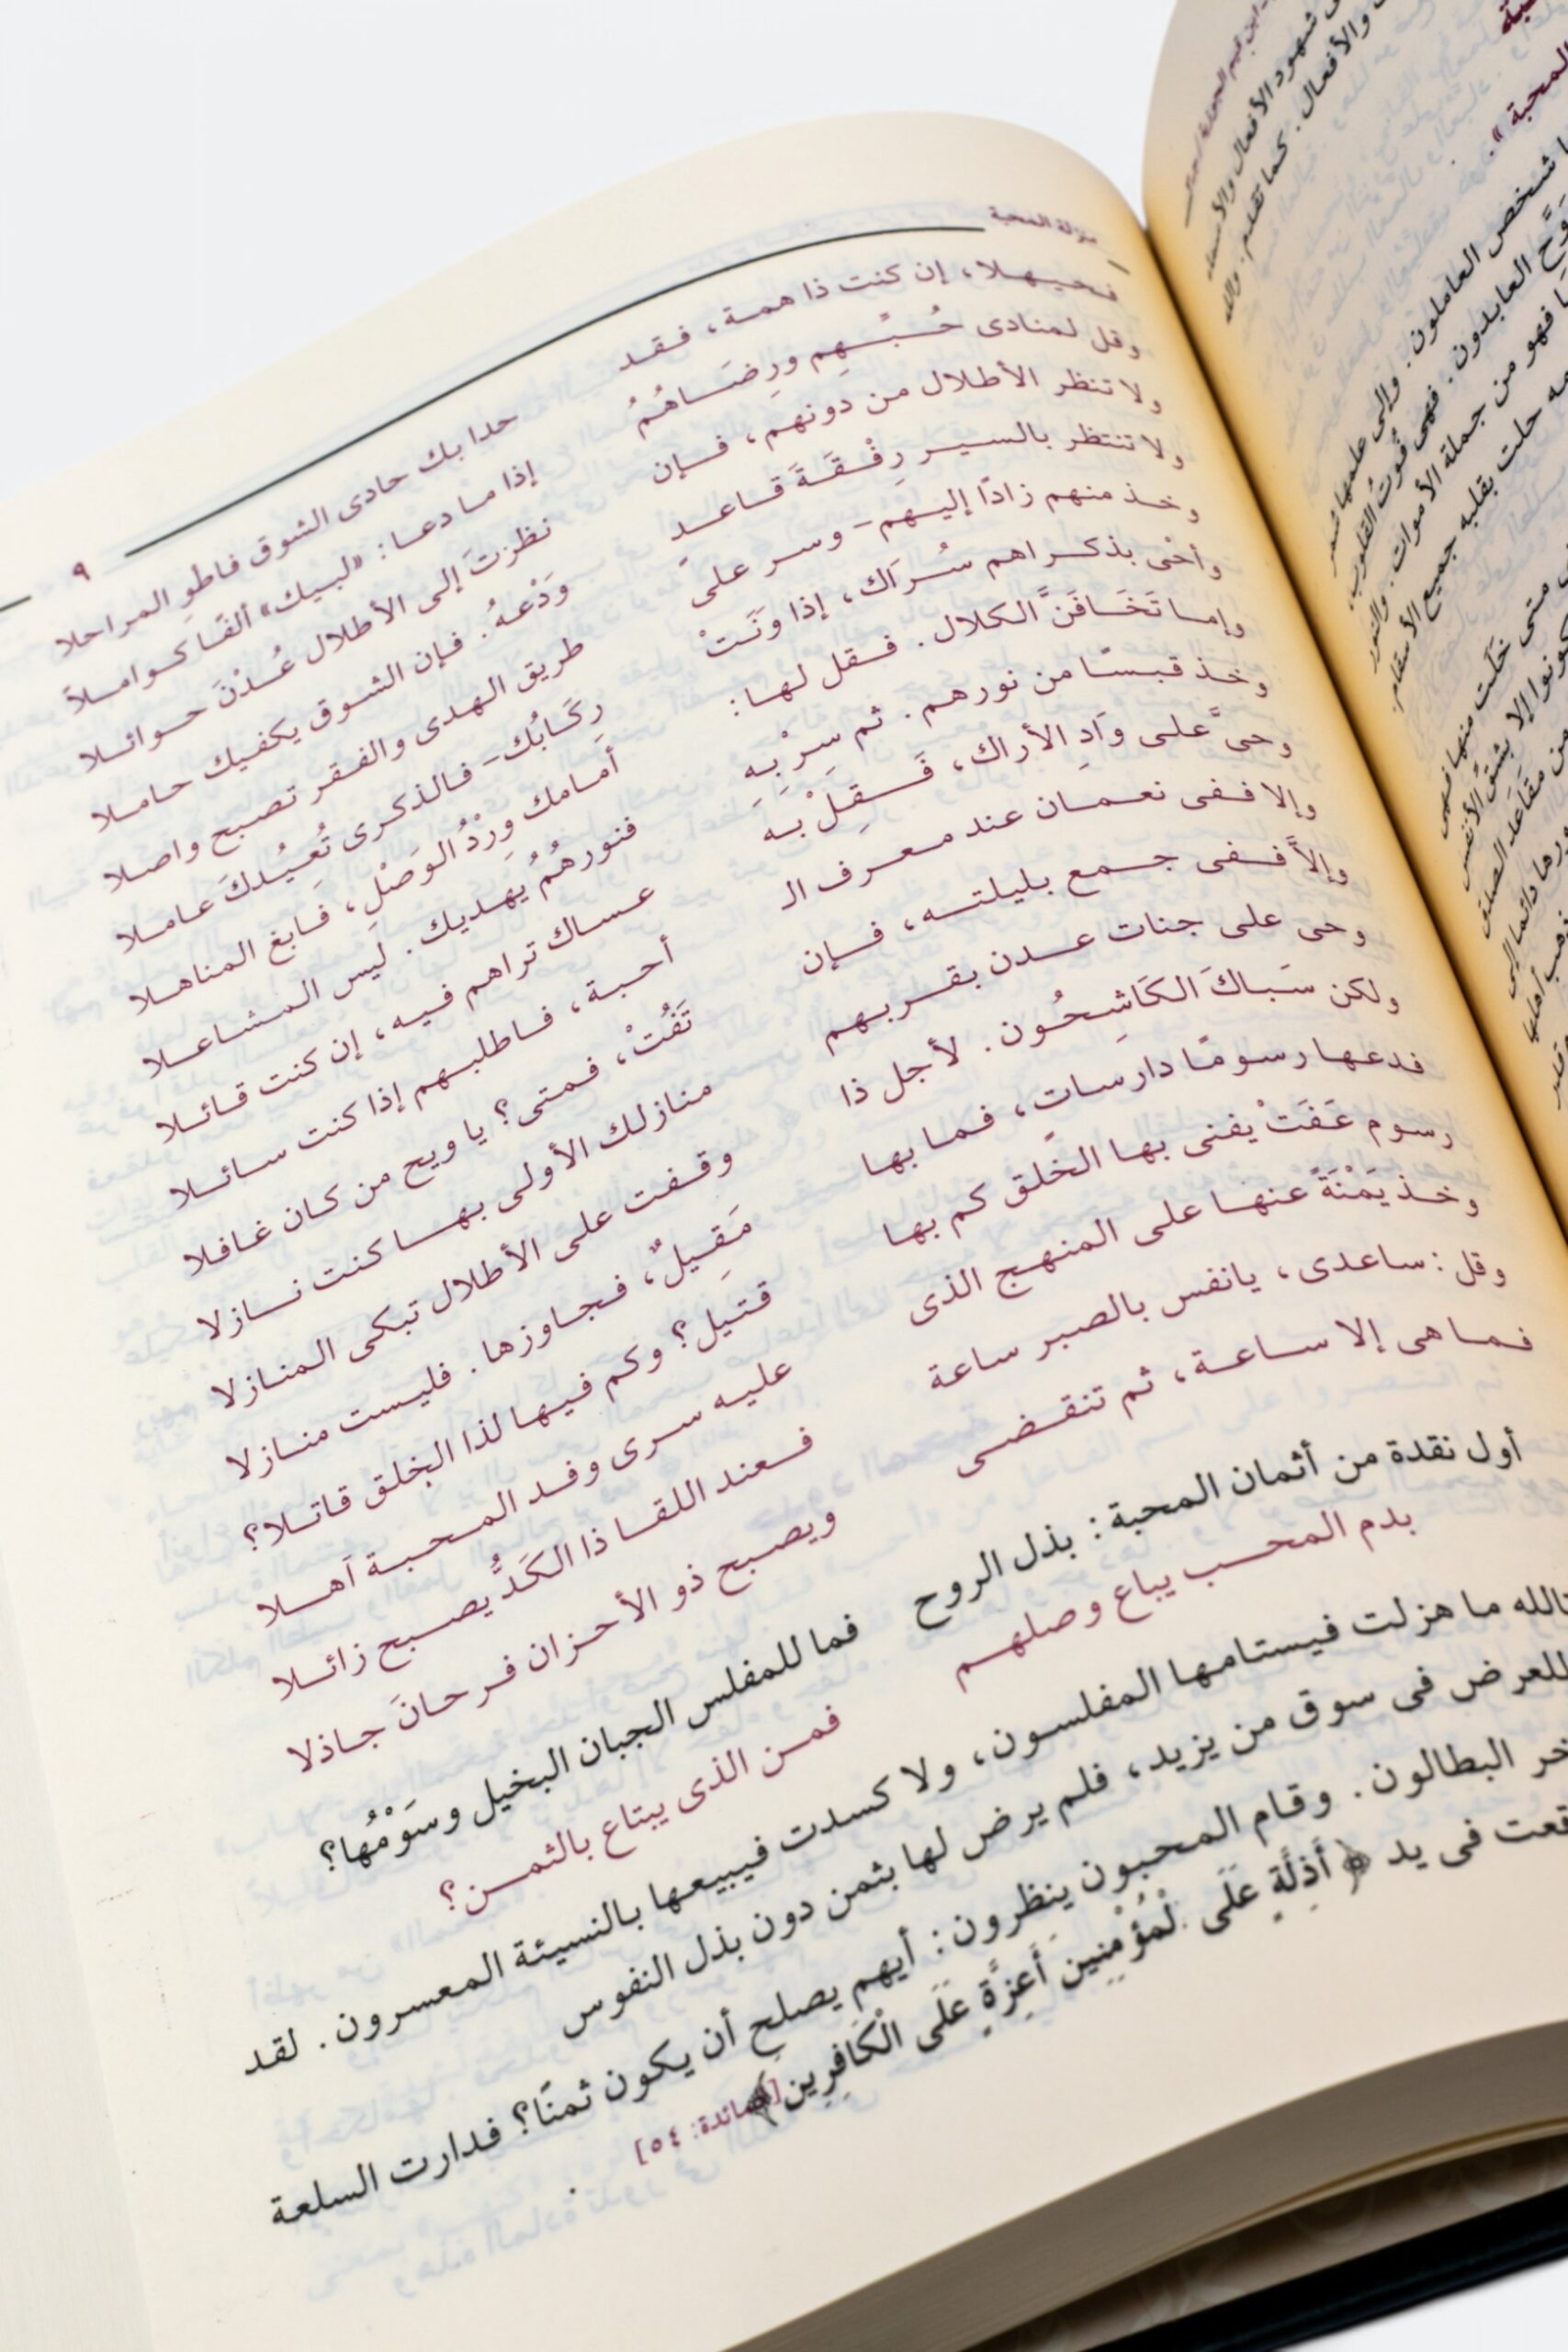 شهود الأفعال والأسماء
والأفعال. كما تقدم. والله
المحبة».
شخص العاملون. وإلى علمها شمر
رَوَّح العابدون. فهى قُوتُ القلوب،
فهو من جملة الأموات. والنور
حلت بقلبه جميع الأسقام.
متى خَلَت منها فهى
إلا بشق الأنفس
من مقاعد الصدق
دائما إلى
منزلة المحبة ٩
فحيهلا، إن كنت ذا همة، فقد حدا بك حادى الشوق فاطوِ المراحلا
وقل لمنادى حُبِّهِم ورِضَاهُمُ إذا ما دعا: «لبيك» ألفًا كواملاً
ولا تنظر الأطلال من دونهم، فإن نظرتَ إلى الأطلال عُدْنَ حوائلا
ولا تنتظر بالسير رِفْقَةَ قاعدٍ وَدَعْهُ. فإن الشوق يكفيك حاملا
وخذ منهم زادًا إليهم- وسر على طريق الهدى والفقر تصبح واصلا
وأحْى بذكراهم سُراَك، إذا ونَتْ رِكَابُك- فالذكرى تُعِيْدكَ عاملا
وإما تَخَافَنَّ الكلال. فقل لها: أمامك وِرْدُ الوَصْلِ، فابغ المناهلا
وخذ قبسًا من نورهم. ثم سِرْ بِهِ فنورهُمُ يهديك. ليس المشاعلا
وحىَّ على وَادِ الأراك، فَقِلْ به عساك تراهم فيه، إن كنت قائلا
وإلا ففى نعمان عند معرف الـ أحبة، فاطلبهم إذا كنت سائلا
وإلاَّ ففى جمع بليلته، فإن تَفُتْ، فمتى؟ يا ويح من كان غافلا
وحى على جنات عدن بقربهم منازلك الأولى بها كنت نازلا
ولكن سَبَاكَ الكَاشِحُون. لأجل ذا وقفت على الأطلال تبكى المنازلا
فدعها رسومًا دارسات، فما بها مَقِيلٌ، فجاوزها. فليست منازلا
رسوم عَفَتْ يفنى بها الخلق كم بها قتيل؟ وكم فيها لذا الخلق قاتلا؟
وخذ يَمْنَةً عنها على المنهج الذى عليه سرى وفد المحبة آهلا
وقل: ساعدى، يانفس بالصبر ساعة فعند اللقا ذا الكَدُّ يصبح زائلا
فما هى إلا ساعة، ثم تنقضى ويصبح ذو الأحزان فرحانَ جاذلا
أول نقدة من أثمان المحبة: بذل الروح فما للمفلس الجبان البخيل وسَوْمُها؟
بدم المحب يباع وصلهم فمن الذى يبتاع بالثمن؟
تالله ما هزلت فيستامها المفلسون، ولا كسدت فيبيعها بالنسيئة المعسرون. لقد
للعرض فى سوق من يزيد، فلم يرض لها بثمن دون بذل النفوس
البطالون. وقام المحبون ينظرون: أيهم يصلح أن يكون ثمنًا؟ فدارت السلعة
فى يد ﴿أَذِلَّةٍ عَلَى الْمُؤْمِنِينَ أَعِزَّةٍ عَلَى الْكَافِرِينَ﴾
[المائدة: ٥٤]